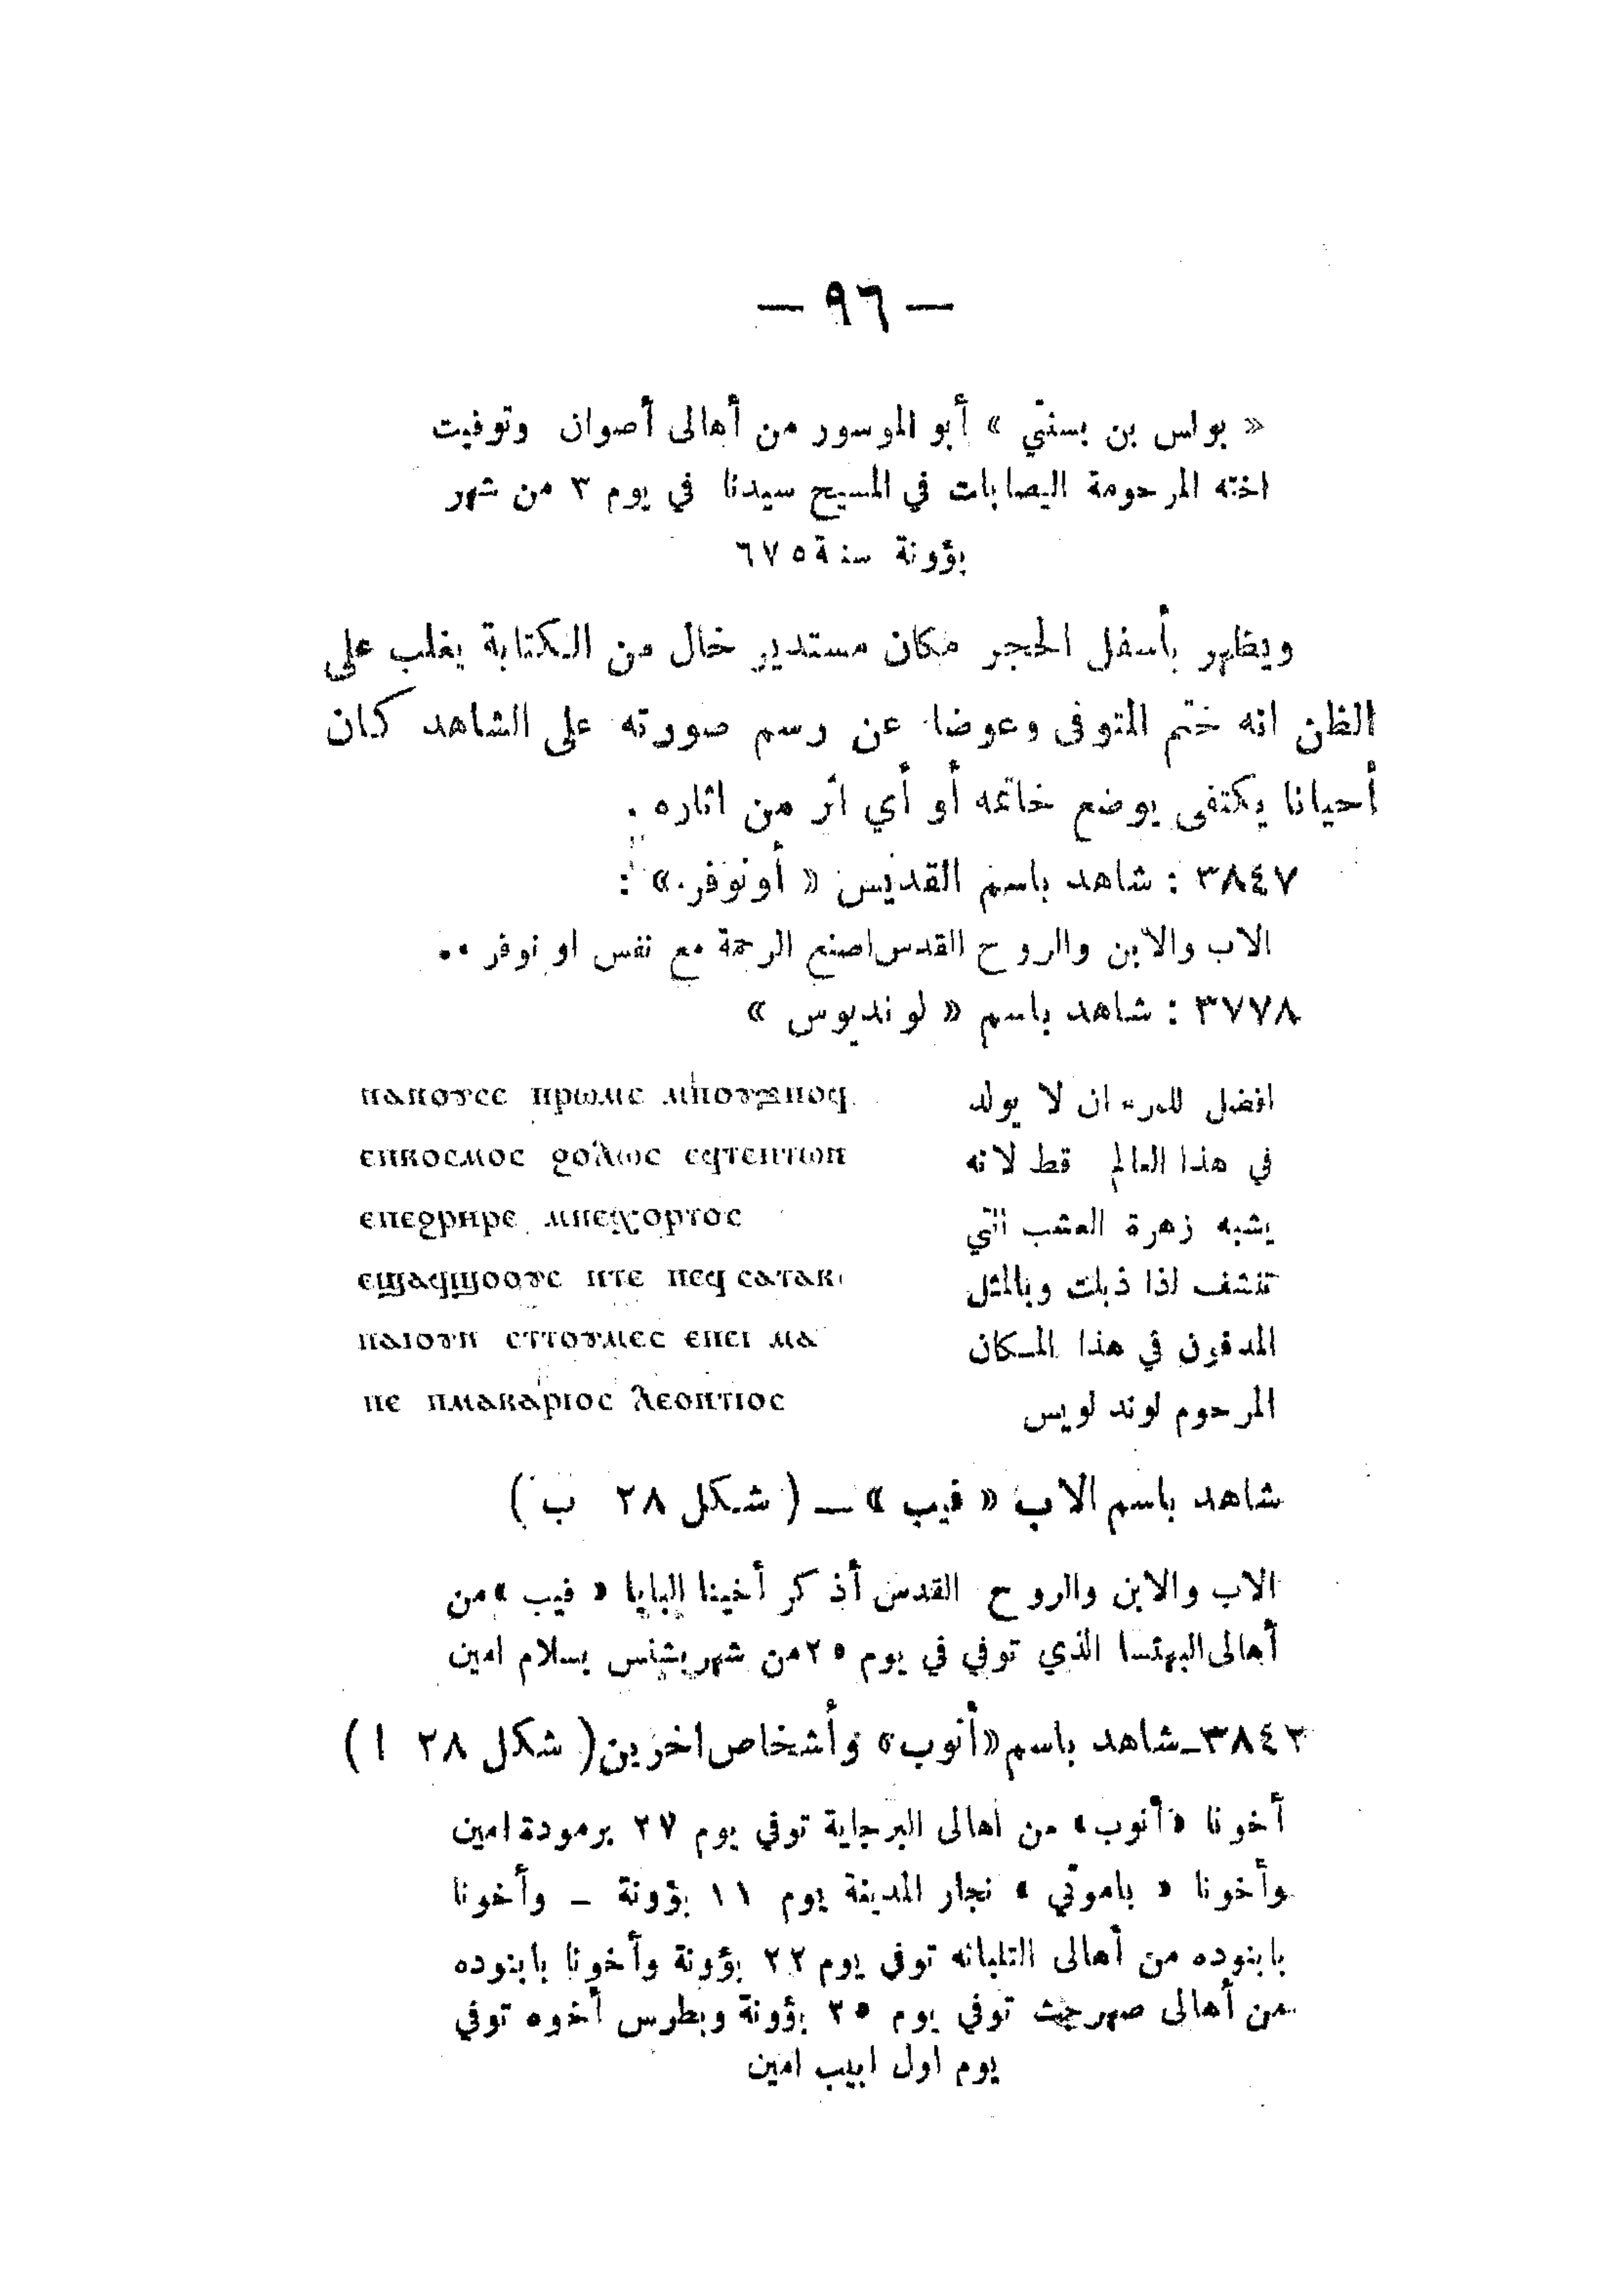 — ٩٦ —
« بولس بن بسنتي » أبو الموسور من أهالى أصوان وتوفيت
اخته المرحومة اليصابات في المسيح سيدنا في يوم ٣ من شهر
بؤونة سنة ٦٧٥
ويظهر بأسفل الحجر مكان مستدير خال من الكتابة يغلب على
الظن انه ختم المتوفى وعوضا عن رسم صورته على الشاهد كان
أحيانا يكتفى بوضع خاتمه أو أي اثر من اثاره .
٣٨٤٧ : شاهد باسم القديس « أونوفر » :
الاب والابن والروح القدس اصنع الرحمة مع نفس اونوفر ..
٣٧٧٨ : شاهد باسم « لونديوس »
افضل للمرء ان لا يولد ⲛⲁⲛⲟⲩⲥⲉ ⲡⲣⲱⲙⲉ ⲙⲡⲟⲩϫⲡⲟϥ
في هذا العالم قط لانه ⲉⲡⲕⲟⲥⲙⲟⲥ ϩⲟⲗⲱⲥ ⲉϥⲧⲉⲛⲧⲱⲛ
يشبه زهرة العشب التي ⲉⲡⲉϩⲣⲏⲣⲉ ⲙⲡⲉⲭⲟⲣⲧⲟⲥ
تنشف اذا ذبلت وبالمثل ⲉϣⲁϥϣⲟⲟⲩⲉ ⲛⲧⲉ ⲡⲉϥ
المدفون في هذا المكان ⲡⲁⲓⲟⲩⲛ ⲉⲧⲧⲟⲩⲙⲉⲥ ⲉⲡⲉⲓ ⲙⲁ
المرحوم لوند لويس ⲡⲉ ⲡⲙⲁⲕⲁⲣⲓⲟⲥ ⲗⲉⲟⲛⲧⲓⲟⲥ
شاهد باسم الاب « فيب » — ( شكل ٢٨ ب )
الاب والابن والروح القدس أذكر أخينا البابا « فيب » من
أهالى البهنسا الذي توفي في يوم ٢٥ من شهر بشنس بسلام امين
٣٨٤٢ـ شاهد باسم «أنوب» وأشخاص اخرين ( شكل ٢٨ ا )
أخونا «أنوب» من اهالى البرجاية توفي يوم ٢٧ برمودة امين
وأخونا « باموتي » نجار المدينة يوم ١١ بؤونة ـ وأخونا
بابنوده من أهالى التلبانه توفى يوم ٢٢ بؤونة وأخونا بابنوده
من أهالى صهرجت توفي يوم ٢٥ بؤونة وبطرس أخوه توفي
يوم اول ابيب امين